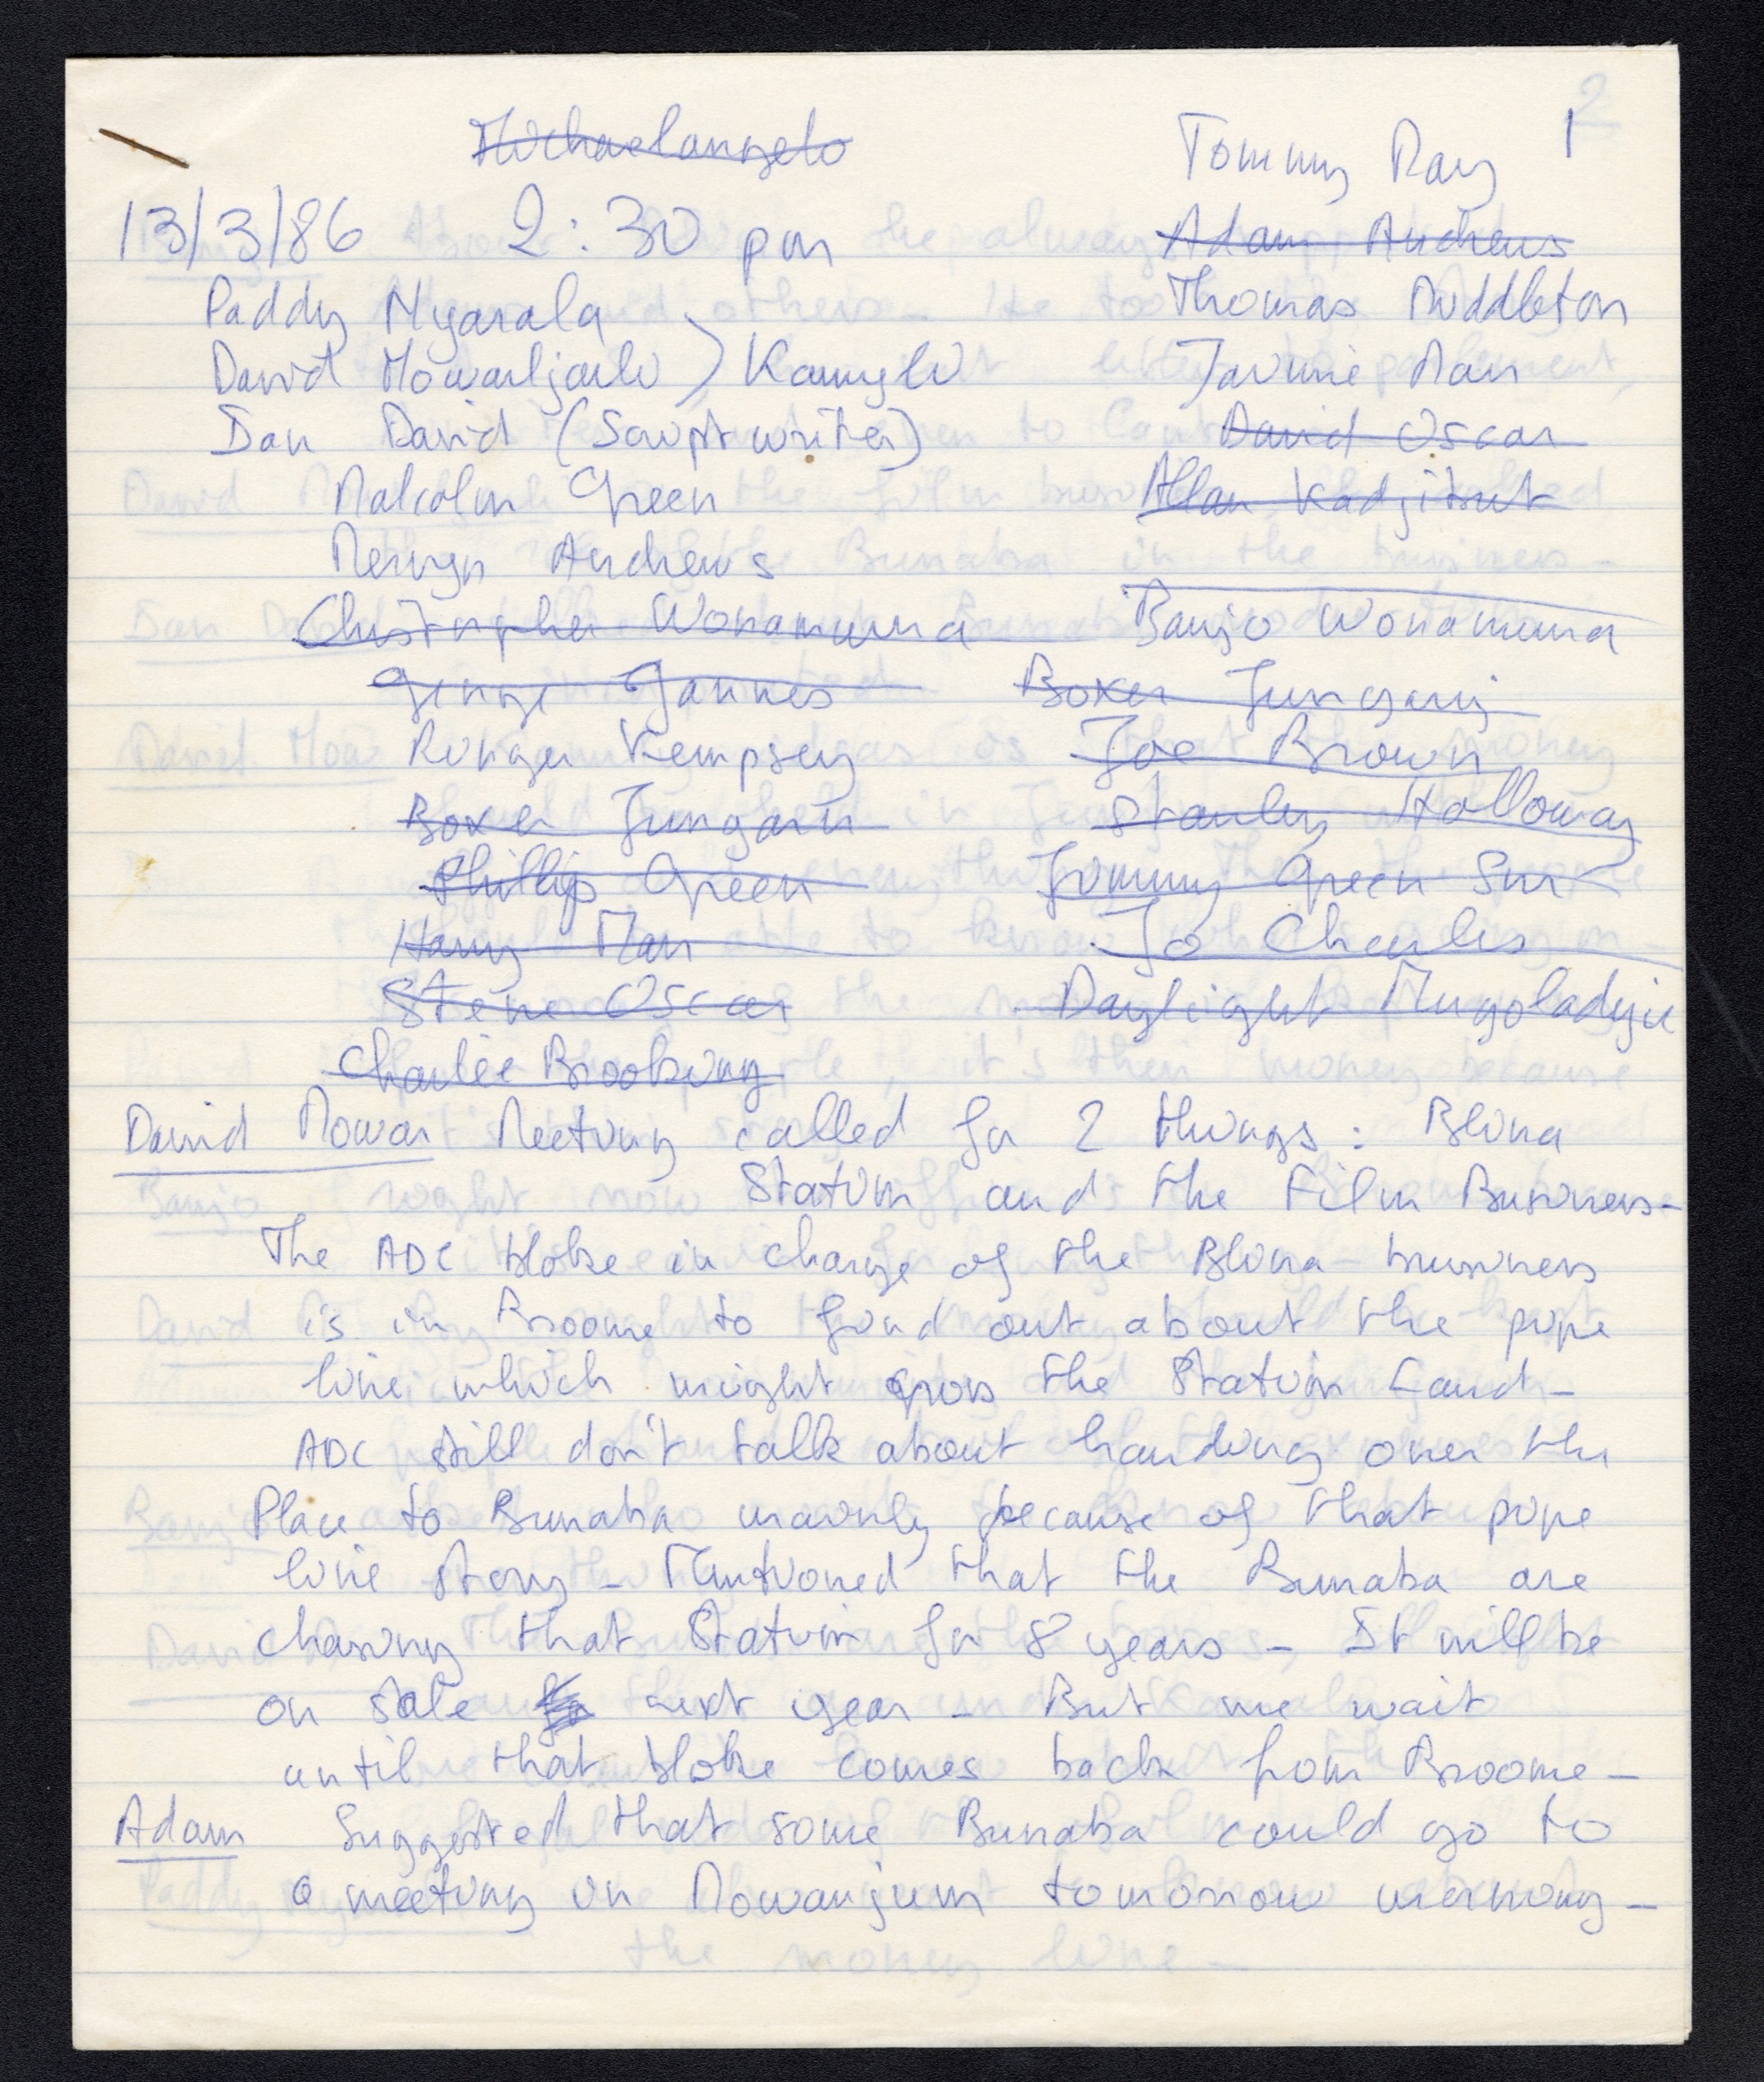 Michaelangelo
Tommy Ray
1
13/3/86 2:30 pm
Adam Andrews
Paddy Nyarala
Thomas Middleton
David Mowarljarli ) Kamali
Jarvine Man
Ian David (Scriptwriter)
David Oscar
Malcolm Green
Allan
Mervyn Andrews
Christopher Wonamurra
Banjo Wonamurra
George Jannes
Boxer Jungarri
Ringer Kempsey
Joe Brown
Boxer Jungarri
Stanley Holloway
Phillip Green
Jimmy Green Snr
Harry Man
Jo Charles
Steve Oscar
Daylight
Charlie Brooking
David Mowar Meeting called for 2 things : Blina
Station and the Film Business -
The ADC bloke in charge of the Blina business
is in Broome to find out about the pipe
line which might cross the Station Land -
ADC still don't talk about handing over the
Place to Bunaba mainly because of that pipe
line story - Mentioned that the Bunaba are
chasing that Station for 8 years - It will be
on sale next year - But we wait
until that bloke comes back from Broome -
Adam Suggested that some Bunaba could go to
a meeting in Mowanjum tomorrow morning -